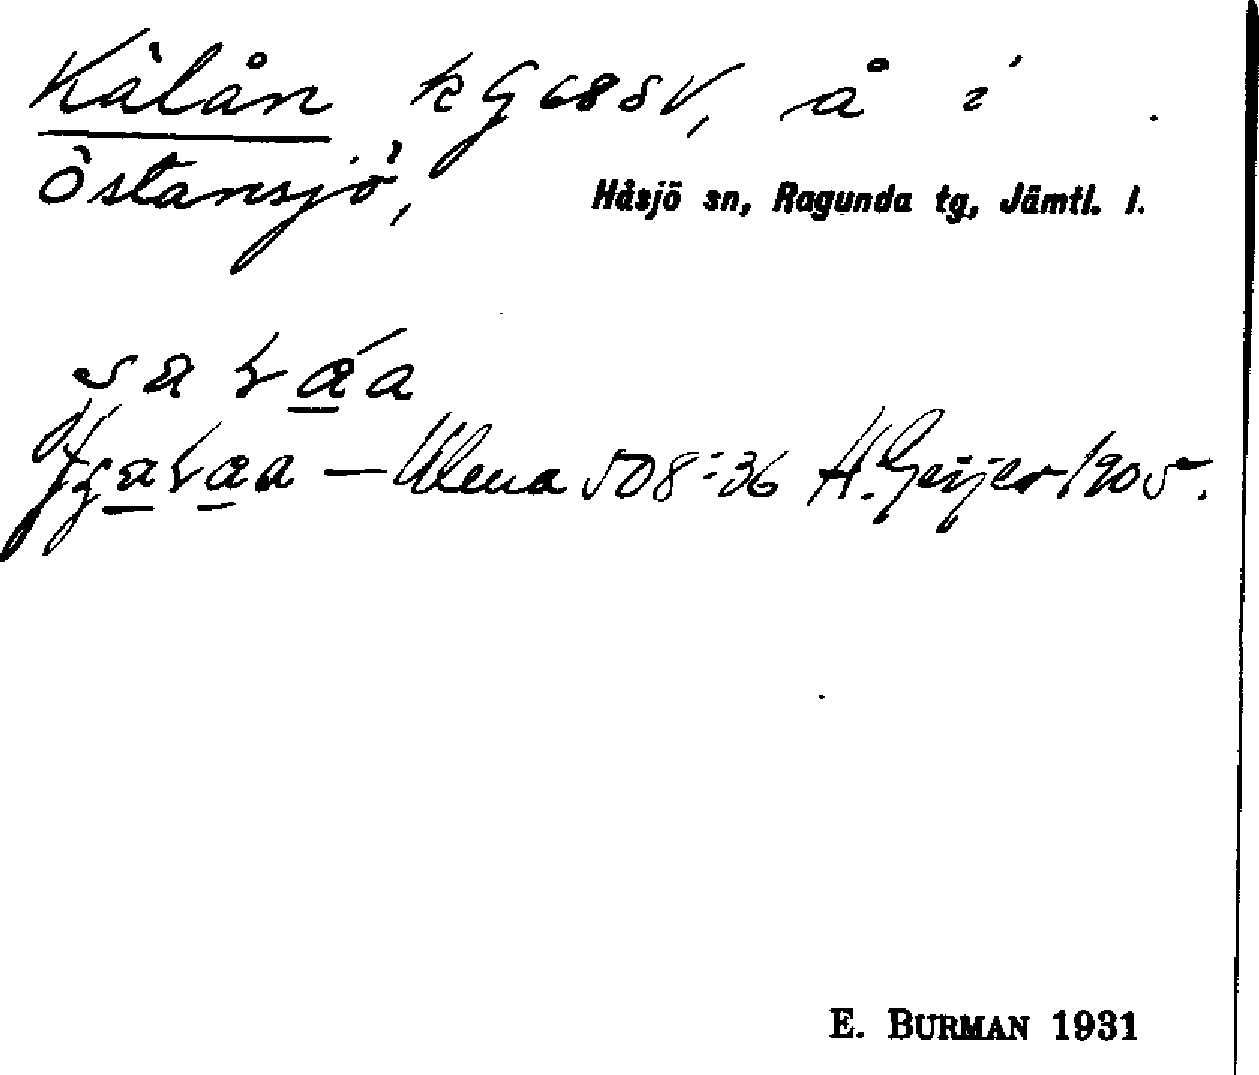 Kälån k G 68 SV, å i
Östansjö, Håsjö sn, Ragunda tg, Jämtl. l.
— Ulena 508:36 H. Geijer 1905.
E. BURMAN 1931